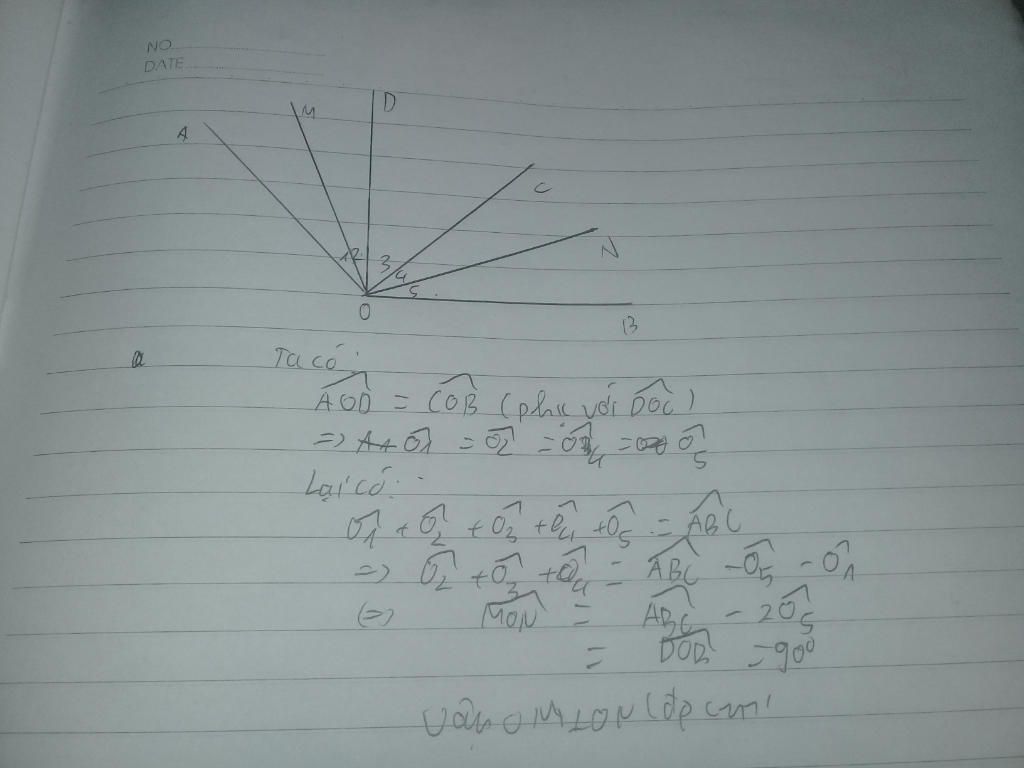 NO
DATE
A M D
C
N
1 2 3 4 5
O
B
a Ta có:
AOD = COB (phụ với DOC)
=> O1 = O2 = O4 = O5
Lại có:
O1 + O2 + O3 + O4 + O5 = ABC
=> O2 + O3 + O4 = ABC - O5 - O1
(=) MON = ABC - 2O5
= DOB = 90⁰
Vậy OM⊥ON (đpcm)